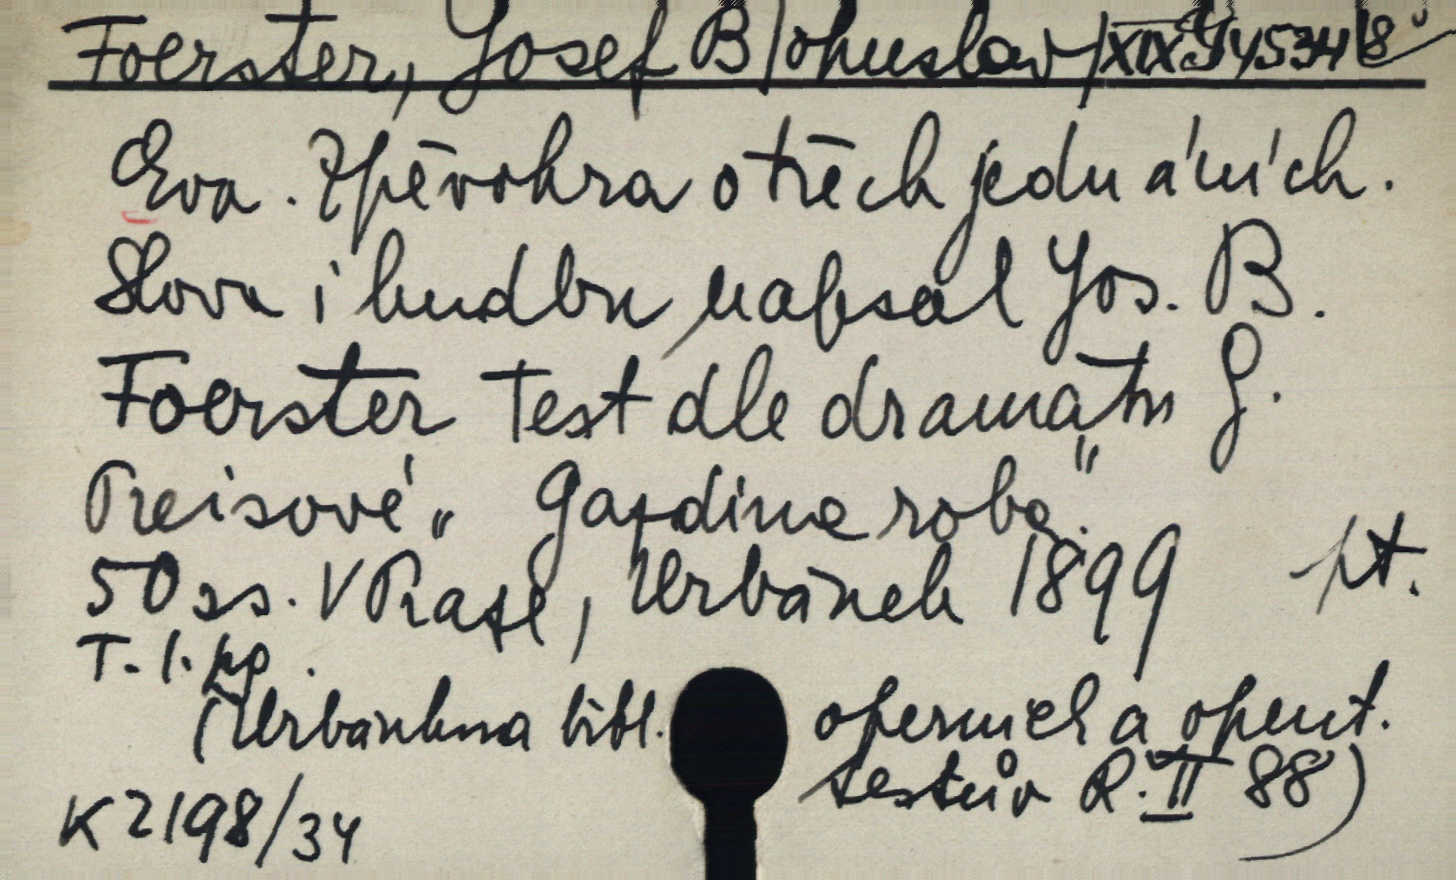 Foerster, Josef B/ohuslav/ XIX G 4534/8
Eva. Zpěvohra o třech jednáních.
Slova i hudbu napsal Jos. B.
Foerster Text dle dramatu G.
Preisové „Gazdina roba".
50 ss. V Praze, Urbánek 1899 pt.
T. l. kp.
(Urbánkova bibl. operních a operet.
textův R. II 88)
K 2198/34